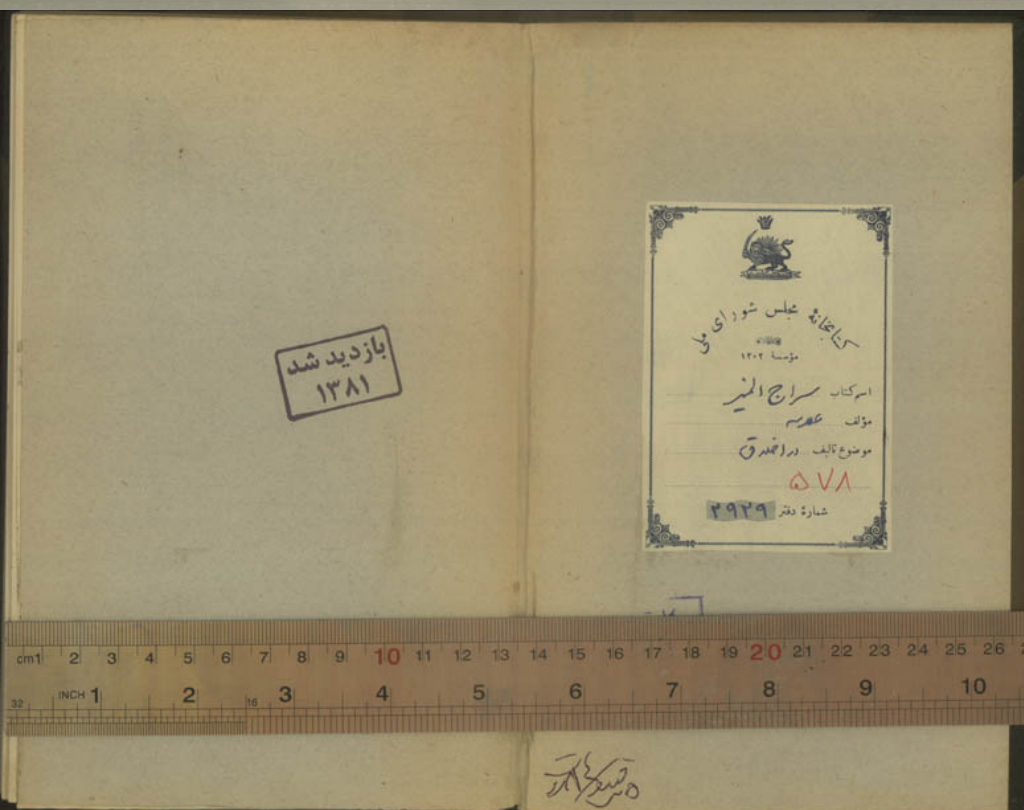 کتابخانهٔ مجلس شورای ملی
مؤسسهٔ ۱۳۰۲
اسم کتاب سراج المنیر
مؤلف
موضوع تالیف در اخلاق
۵۷۸
شمارهٔ دفتر ۲۹۲۹
بازدید شد
۱۳۸۱
cm1 2 3 4 5 6 7 8 9 10 11 12 13 14 15 16 17 18 19 20 21 22 23 24 25 26
32 INCH 1 16 2 3 4 5 6 7 8 9 10